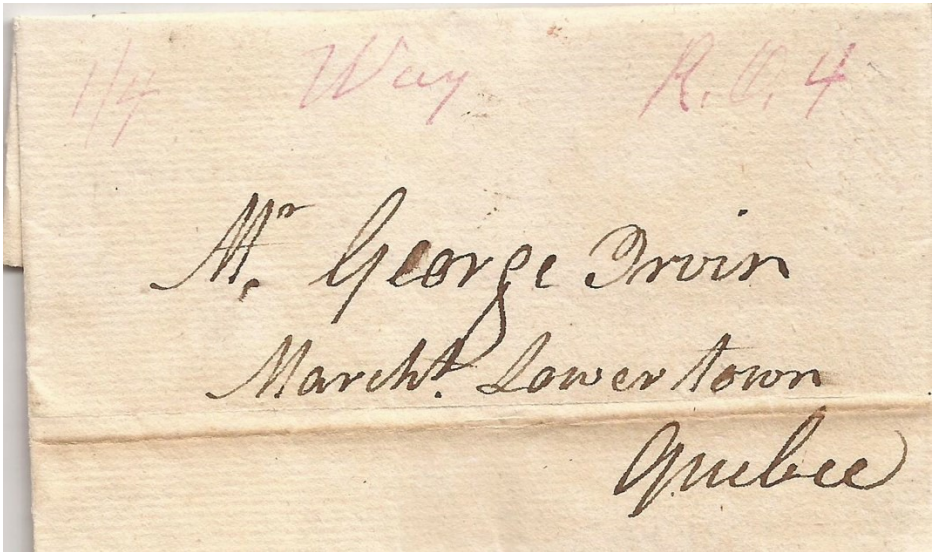 1/4 Way R.O. 4
Mr. George Irvin
Marcht. Lowertown
Quebec